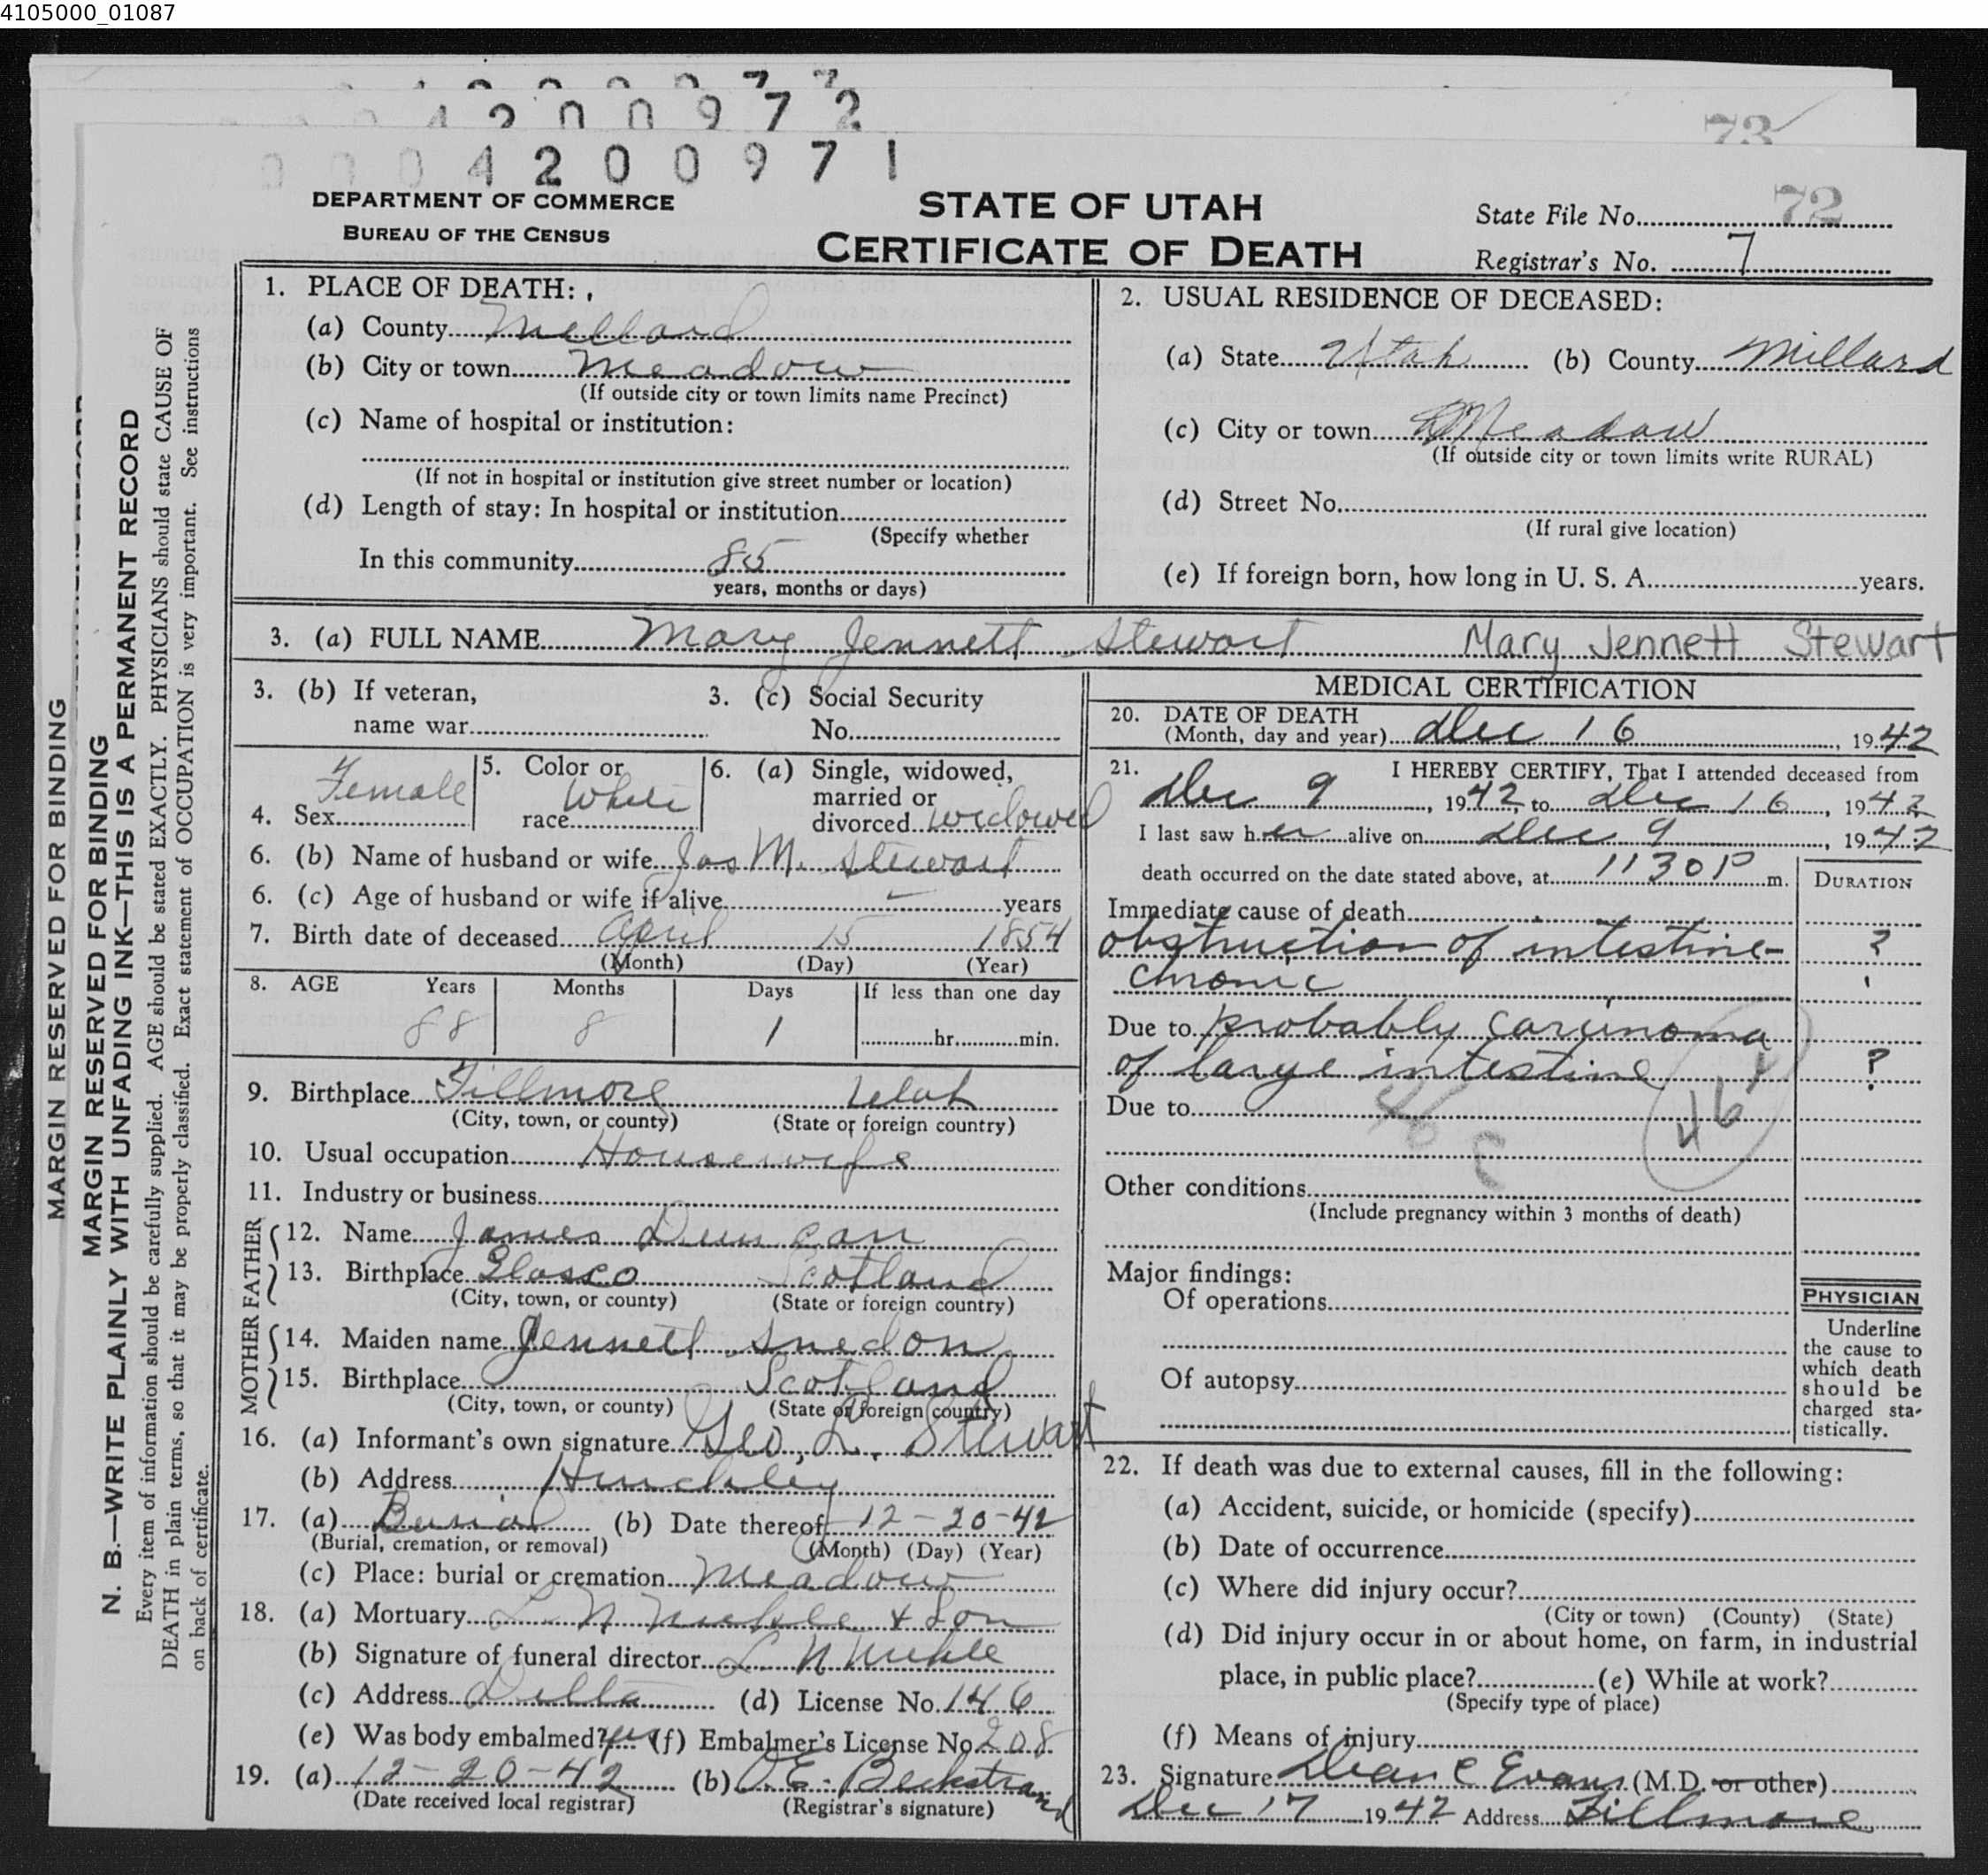 4105000_01087
4 2 0 0 9 7 2
73
0 0 0 4 2 0 0 9 7 1
DEPARTMENT OF COMMERCE
BUREAU OF THE CENSUS
STATE OF UTAH
CERTIFICATE OF DEATH
State File No. 72
Registrar's No. 7
MARGIN RESERVED FOR BINDING
MARGIN RESERVED FOR BINDING
N. B.—WRITE PLAINLY WITH UNFADING INK—THIS IS A PERMANENT RECORD
Every item of information should be carefully supplied. AGE should be stated EXACTLY. PHYSICIANS should state CAUSE OF
DEATH in plain terms, so that it may be properly classified. Exact statement of OCCUPATION is very important. See instructions
on back of certificate.
1. PLACE OF DEATH:
(a) County Mellard
(b) City or town Meadow
(If outside city or town limits name Precinct)
(c) Name of hospital or institution:
(If not in hospital or institution give street number or location)
(d) Length of stay: In hospital or institution
(Specify whether
In this community 85
years, months or days)
2. USUAL RESIDENCE OF DECEASED:
(a) State Utah (b) County Millard
(c) City or town Meadow
(If outside city or town limits write RURAL)
(d) Street No.
(If rural give location)
(e) If foreign born, how long in U. S. A. years.
3. (a) FULL NAME Mary Jennett Stewart Mary Jennett Stewart
3. (b) If veteran,
name war
3. (c) Social Security
No.
4. Sex Female
5. Color or
race White
6. (a) Single, widowed,
married or
divorced widowed
6. (b) Name of husband or wife Jas M. Stewart
6. (c) Age of husband or wife if alive — years
7. Birth date of deceased April 15 1854
(Month) (Day) (Year)
8. AGE Years Months Days If less than one day
88 8 1 hr. min.
9. Birthplace Fillmore Utah
(City, town, or county) (State or foreign country)
10. Usual occupation Housewife
11. Industry or business
FATHER
12. Name James Duncan
13. Birthplace Glasco Scotland
(City, town, or county) (State or foreign country)
MOTHER
14. Maiden name Jennett Snedon
15. Birthplace Scotland
(City, town, or county) (State or foreign country)
16. (a) Informant's own signature Geo. L. Stewart
(b) Address Hinckley
17. (a) Burial (b) Date thereof 12-20-42
(Burial, cremation, or removal) (Month) (Day) (Year)
(c) Place: burial or cremation Meadow
18. (a) Mortuary L N & Son
(b) Signature of funeral director L N
(c) Address Delta (d) License No. 146
(e) Was body embalmed? yes (f) Embalmer's License No. 208
19. (a) 12-20-42 (b) O.E. Beckstrand
(Date received local registrar) (Registrar's signature)
MEDICAL CERTIFICATION
20. DATE OF DEATH
(Month, day and year) Dec 16, 1942
21. I HEREBY CERTIFY, That I attended deceased from
Dec 9, 1942 to Dec 16, 1942
I last saw her alive on Dec 9, 1942
death occurred on the date stated above, at 1130 P m.
DURATION
Immediate cause of death
obstruction of intestine- ?
chronic
Due to probably carcinoma
of large intestine ?
Due to 46 C
Other conditions
(Include pregnancy within 3 months of death)
Major findings:
Of operations
Of autopsy
PHYSICIAN
Underline
the cause to
which death
should be
charged sta-
tistically.
22. If death was due to external causes, fill in the following:
(a) Accident, suicide, or homicide (specify)
(b) Date of occurrence
(c) Where did injury occur?
(City or town) (County) (State)
(d) Did injury occur in or about home, on farm, in industrial
place, in public place? (e) While at work?
(Specify type of place)
(f) Means of injury
23. Signature Dean C Evans (M.D. or other)
Dec 17 1942 Address Fillmore